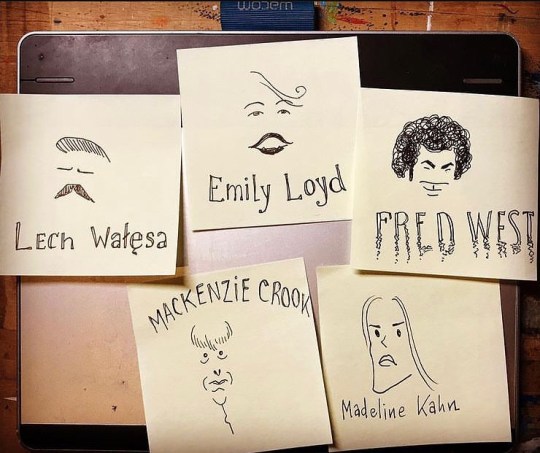 wacom
Emily Loyd
Lech Wałęsa
FRED WEST
MACKENZIE CROOK
Madeline Kahn